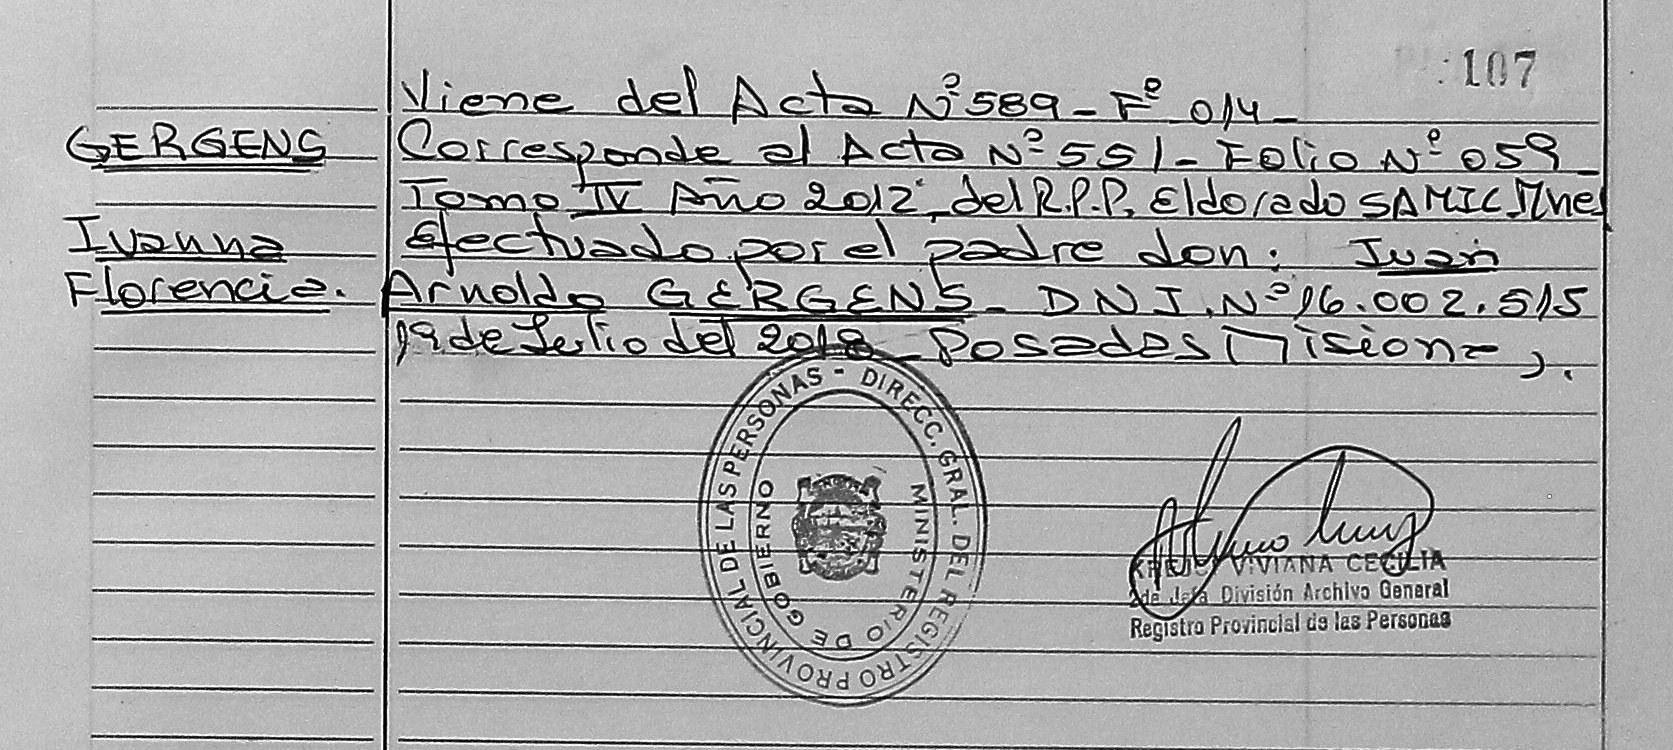 107
Viene del Acta Nº 589 - Fº 014 -
GERGENS
Corresponde al Acta Nº 551 - Folio Nº 059 -
Tomo IV Año 2012, del R.P.P. Eldorado SAMIC Mnes
Ivanna
Efectuado por el padre don: Juan
Florencia.
Arnoldo GERGENS - DNI. Nº 16.002.515
19 de Julio del 2018 - Posadas Misiones.
DIRECC. GRAL. DEL REGISTRO PROVINCIAL DE LAS PERSONAS -
MINISTERIO DE GOBIERNO
VIVIANA CECILIA
2da Jefa División Archivo General
Registro Provincial de las Personas